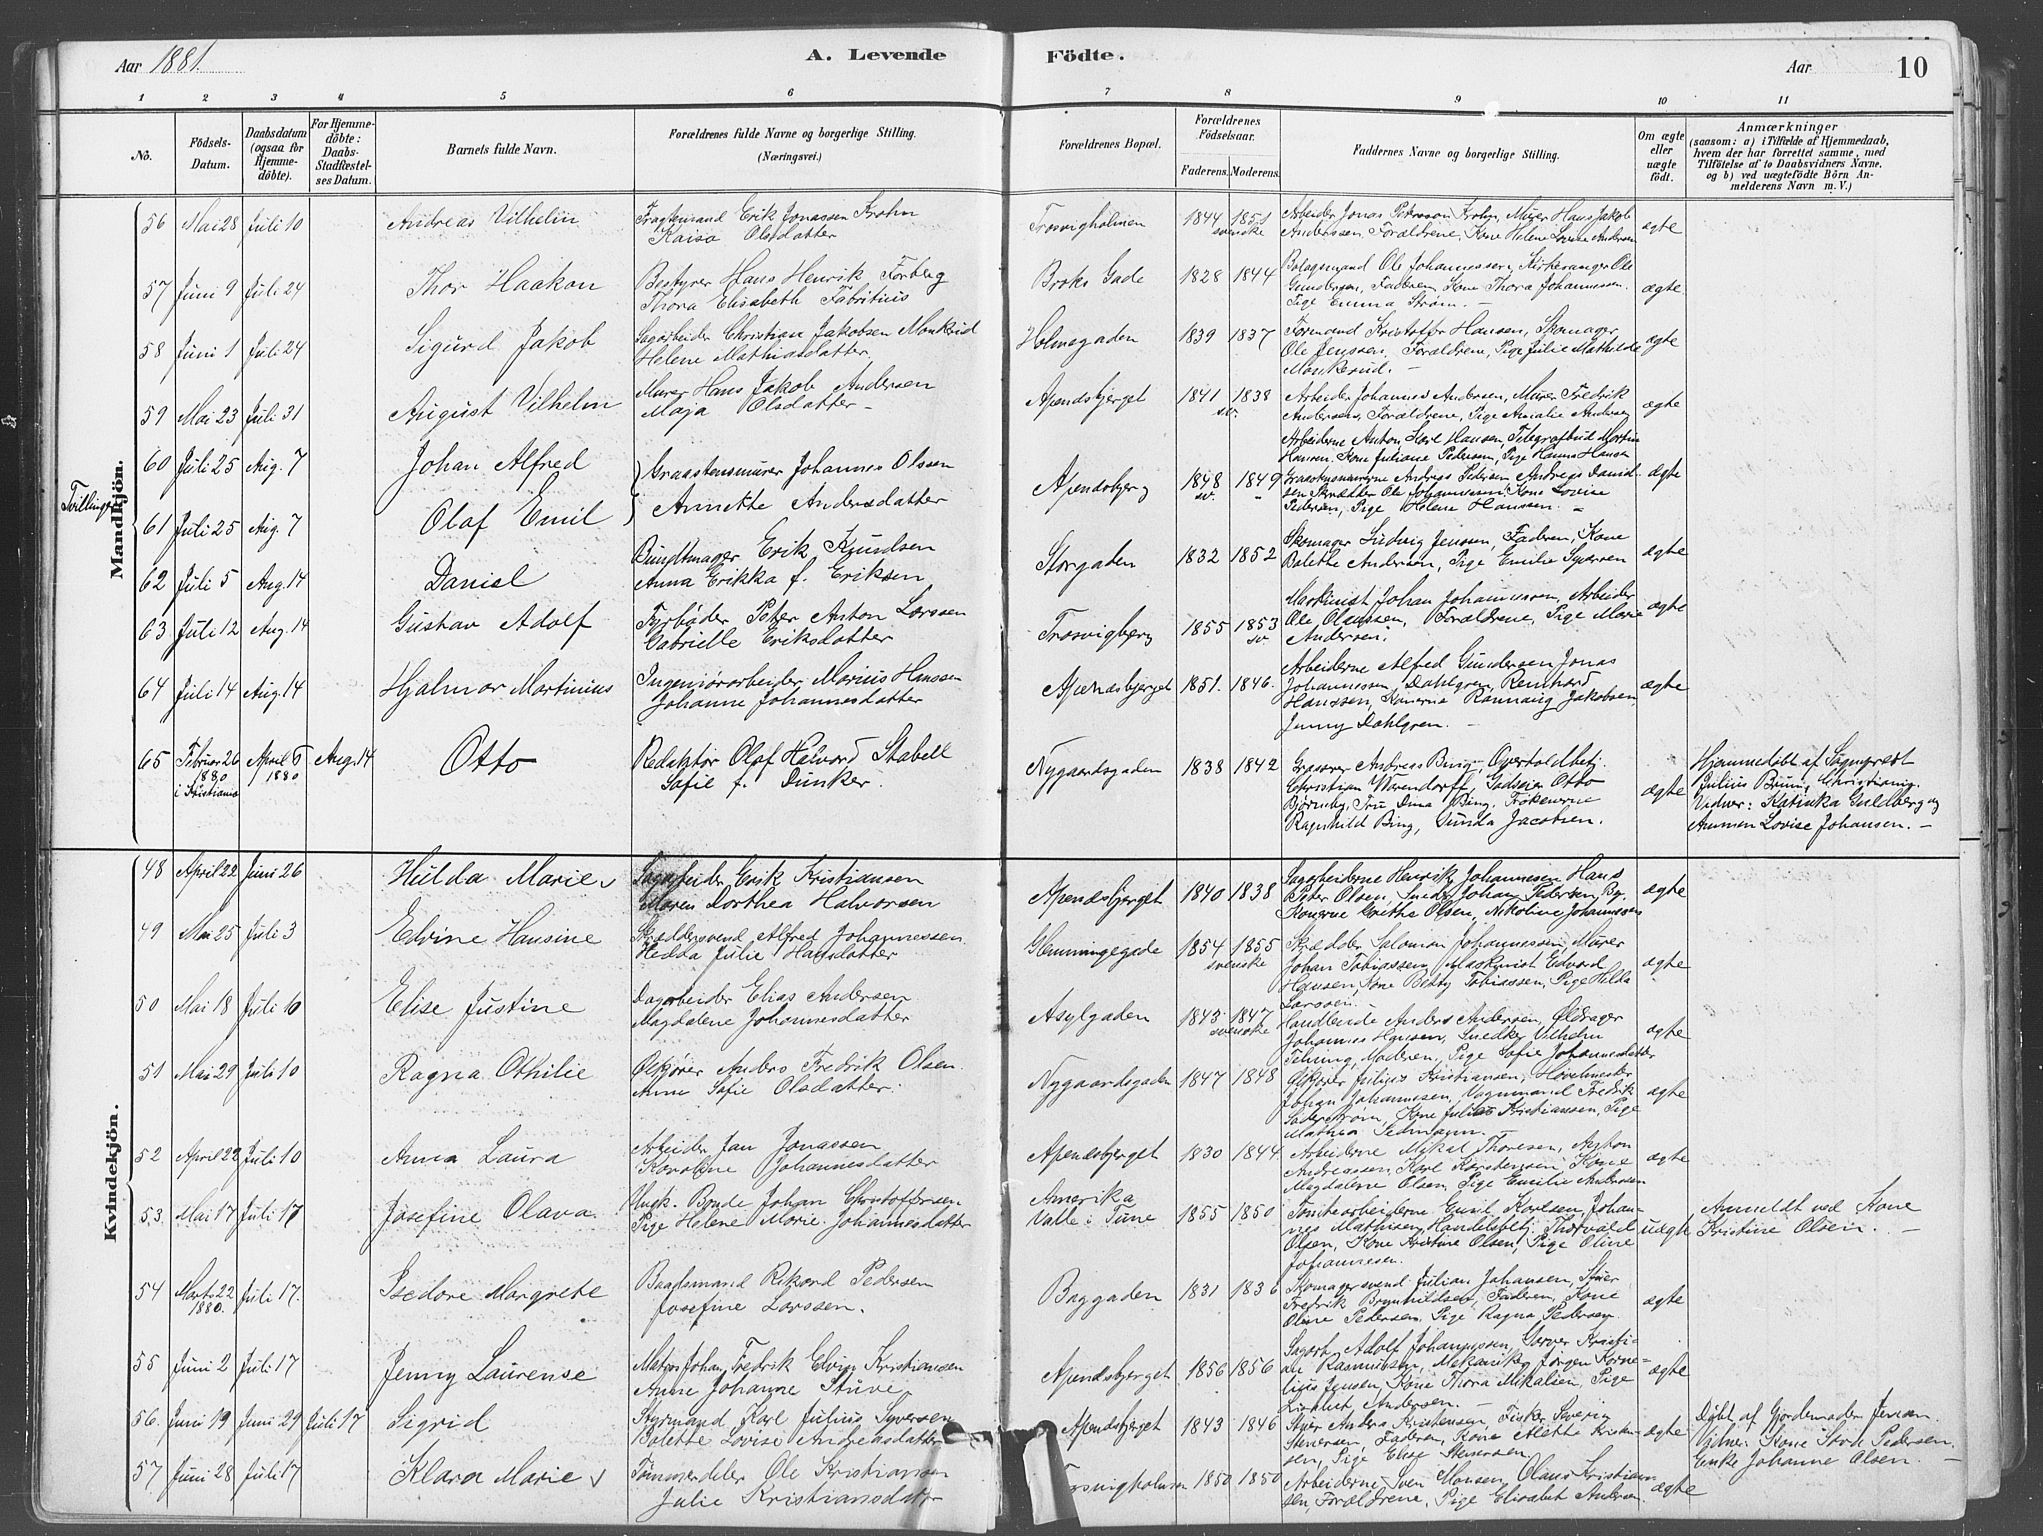 Aar 1881.
A. Levende Födte.
Aar
10
1 2 3 4 5 6 7 8 9 10 11
No.
Födsels-Datum.
Daabsdatum (ogsaa for Hjemme-döbte).
For Hjemme-döbte: Daabs-Stadfæstel-ses Datum.
Barnets fulde Navn.
Forældrenes fulde Navne og borgerlige Stilling.
(Næringsvei.)
Forældrenes Bopæl.
Forældrenes Födselsaar.
Faderens. Moderens.
Faddernes Navne og borgerlige Stilling.
Om ægte eller uægte födt.
Anmærkninger
(saasom: a) i Tilfælde af Hjemmedaab, hvem der har forrettet samme, med Tilföielse af to Daabsvidners Navne, og b) ved uægtefödte Börn An-melderens Navn m. V.)
Mandkjön.
56 Mai 28 Juli 10 Andreas Vilhelm
Fragtemand Erik Jonassen Krohn
Kaisa Olsdatter
Trosvigholmen 1844 1851 svenske
Arbeider Jonas Petersson Krohn, Murer Hans Jakob
Anderssen, Forældrene, Kone Helene Lovise Andersen
ægte
57 Juni 9 Juli 24 Thor Haakon
Bestyrer Hans Henrik Forberg
Thora Elisabeth Fabritius
Broks Gade 1828 1844
Bolagsmand Ole Johannessen, Kirkesanger Ole
Gundersen, Faderen, Kone Thora Johannessen.
Pige Emma Strøm. —
ægte
58 Juni 1 Juli 24 Sigurd Jakob
Sagarbeider Christian Jakobsen Monkerud
Helene Mathiasdatter
Holmegaden 1839 1837
Formand Kristoffer Hansen, Skomager
Ole Jenssen, Forældrene, Pige Julie Mathilde
Monkerud. —
ægte
59 Mai 23 Juli 31 August Vilhelm
Murer Hans Jakob Andersen
Maja Olsdatter —
Apenesbjerget 1841 1838 sv.
Arbeider Johannes Andersen, Murer Fredrik
Andersen, Forældrene, Pige Amalie Andersen
ægte
Tvillinger
60 Juli 25 Aug. 7 Johan Alfred
61 Juli 25 Aug. 7 Olaf Emil
Graastensmurer Johannes Olssen
Annette Andersdatter
Apenesbjerg 1848 1849 sv. "
Arbeiderne Anton, Karl Hansen, Telegrafbud Martin
Hansen, Kone Juliane Pedersen, Pige Hanna Hansen
Graastensmurerne Andreas Pedersen Andreas David-
sen Skrædder Ole Johannessen, Kone Lovise
Pedersen, Pige Helene Hanssen. —
ægte
62 Juli 5 Aug. 14 Daniel
Bundtmager Erik Knudsen
Anna Erikka f. Eriksen
Storgaden 1832 1852
Skomager Ludvig Jenssen, Faderen, Kone
Bolethe Andersen, Pige Emilie Syversen
ægte
63 Juli 12 Aug. 14 Gustav Adolf
Fyrbøder Peter Anton Larssen
Gabrielle Eriksdatter
Trosvigberg 1855 1853 sv.
Maskinist Johan Johannessen, Arbeider
Ole Olaussen, Forældrene, Pige Marie
Andersen.
ægte
64 Juli 14 Aug. 14 Hjalmar Martinius
Ingeniørarbeider Marius Hanssen
Johanne Johannesdatter
Apenesbjerget 1851. 1846.
Arbeiderne Alfred Gundersen, Jonas
Johannessen Dahlgren, Reinhard
Hanssen, Konerne Rannaug Jakobsen
Jenny Dahlgren. —
ægte
65 Februar 26 1880 i Kristiania April 6 1880 Aug. 14 Otto
Redaktør Olaf Halvord Stabell
Sofie f. Dunker.
Nygaardsgaden 1838 1842
Grosserer Andreas Bing, Overtoldbetj.
Christian Warendorff, Godseier Otto
Bjørneby, Fru Dina Bing, Frøknerne
Ragnhild Bing, Gunda Jacobsen.
ægte
Hjemmedøbt af Sogneprest
Julius Bruun, Christiania.
Vidner: Katinka Guldberg og
Ammen Lovise Johansen. —
Kvindekjön.
48 April 22 Juni 26 Hulda Marie
Sagarbeider Erik Kristiansen
Maren Dorthea Halvorsen
Apenesbjerget 1840 1838
Sagarbeiderne Henrik Johannesen Hans
Peter Olsen, Snedker Johan Pedersen By.
Konerne Grethe Olsen, Nikoline Johannessen
ægte
49 Mai 25 Juli 3 Elvine Hansine
Skræddersvend Alfred Johannessen
Hedda Julie Hansdatter
Glemmingegade 1854 1855 svenske
Skrædder Salomon Johannessen, Murer
Johan Tobiassen, Maskinist Edvard
Hansen, Kone Betty Tobiassen, Pige Hilda
Larssen.
ægte
50 Mai 18 Juli 10 Elise Justine
Dagarbeider Elias Andersen
Magdalene Johannesdatter
Asylgaden 1843 1847 svenske
Handlende Anders Andersen, Øldrager
Johannes Hansen, Snedker Vilhelm
Moderen, Pige Sofie Johannesdatter
ægte
51 Mai 29 Juli 10 Ragna Othilie
Ølkjører Anders Fredrik Olsen
Anne Sofie Olsdatter.
Nygaardsgaden 1847 1848
Ølkjører Julius Kristiansen, Høvelmester
Johan Johannesen, Vognmand Fredrik
Søderstrøm, Kone Julie Kristiansen, Pige
Mathea
ægte
52 April 22 Juli 10 Anna Laura
Arbeider Jan Jonassen
Karoline Johannesdatter
Apenesbjerget 1830 1844
Arbeiderne Mikal Thoresen, Anton
Andreassen, Karl Karstensen, Kone
Magdalene Olsen, Pige Emilie Andersen
ægte
53. Mai 17 Juli 17 Josefine Olava
Ungk. Bonde Johan Christoffersen
Pige Helene Marie Johannesdatter
Amerika
Valle i Tune 1855 1850
Tomtearbeiderne Emil Karlsen, Johan-
nes Mathisen, Handelsbetj. Thorvald
Olsen, Kone Kristine Olsen, Pige Oline
Johannesen.
uægte
Anmeldt ved Kone
Kristine Olsen. —
54 Marts 22 1880. Juli 17. Isedore Margrete
Baadsmand Rikard Pedersen
Josefine Larssen.
Baggaden 1831 1836
Skomagersvend Julian Johansen, Stuer
Fredrik Brynhildsen, Faderen, Kone
Oline Pedersen Pige Ragna Pedersen
ægte
55 Juni 2 Juli 17 Jenny Laurense
Matros Johan Fredrik Elvin Kristiansen
Anne Johanne Stuve
Apenesbjerget 1856 1856
Sagarb. Adolf Johannssen, Garver Kristi-
an Rasmussen, Mekaniker Jørgen Korne-
lius Jensen, Kone Thora Mikalsen, Pige
Andersen. —
ægte
56. Juni 19 Juni 29 Juli 17 Sigrid
Styrmand Karl Julius Syversen
Bolette Lovise Andreasdatter
Apenesbjerget 1843 1846
Stuer Anders Kristensen, Fisker Severin
Stenersen, Faderen, Kone Alette Kristen-
sen, Pige Elise Stenersen.
ægte
Døbt af Gjordemoder Jensen.
Vidner: Kone Pedersen.
Enke Johanne Olsen. —
57 Juni 28 Juli 17 Klara Marie
Tømmerdeler Ole Kristiansen
Julie Kristiansdatter
Trosvigholmen 1850 1850
Arbeiderne Sven Monsen, Olaus Kristian-
sen, Forældrene, Pige Elisabet Andersen
ægte